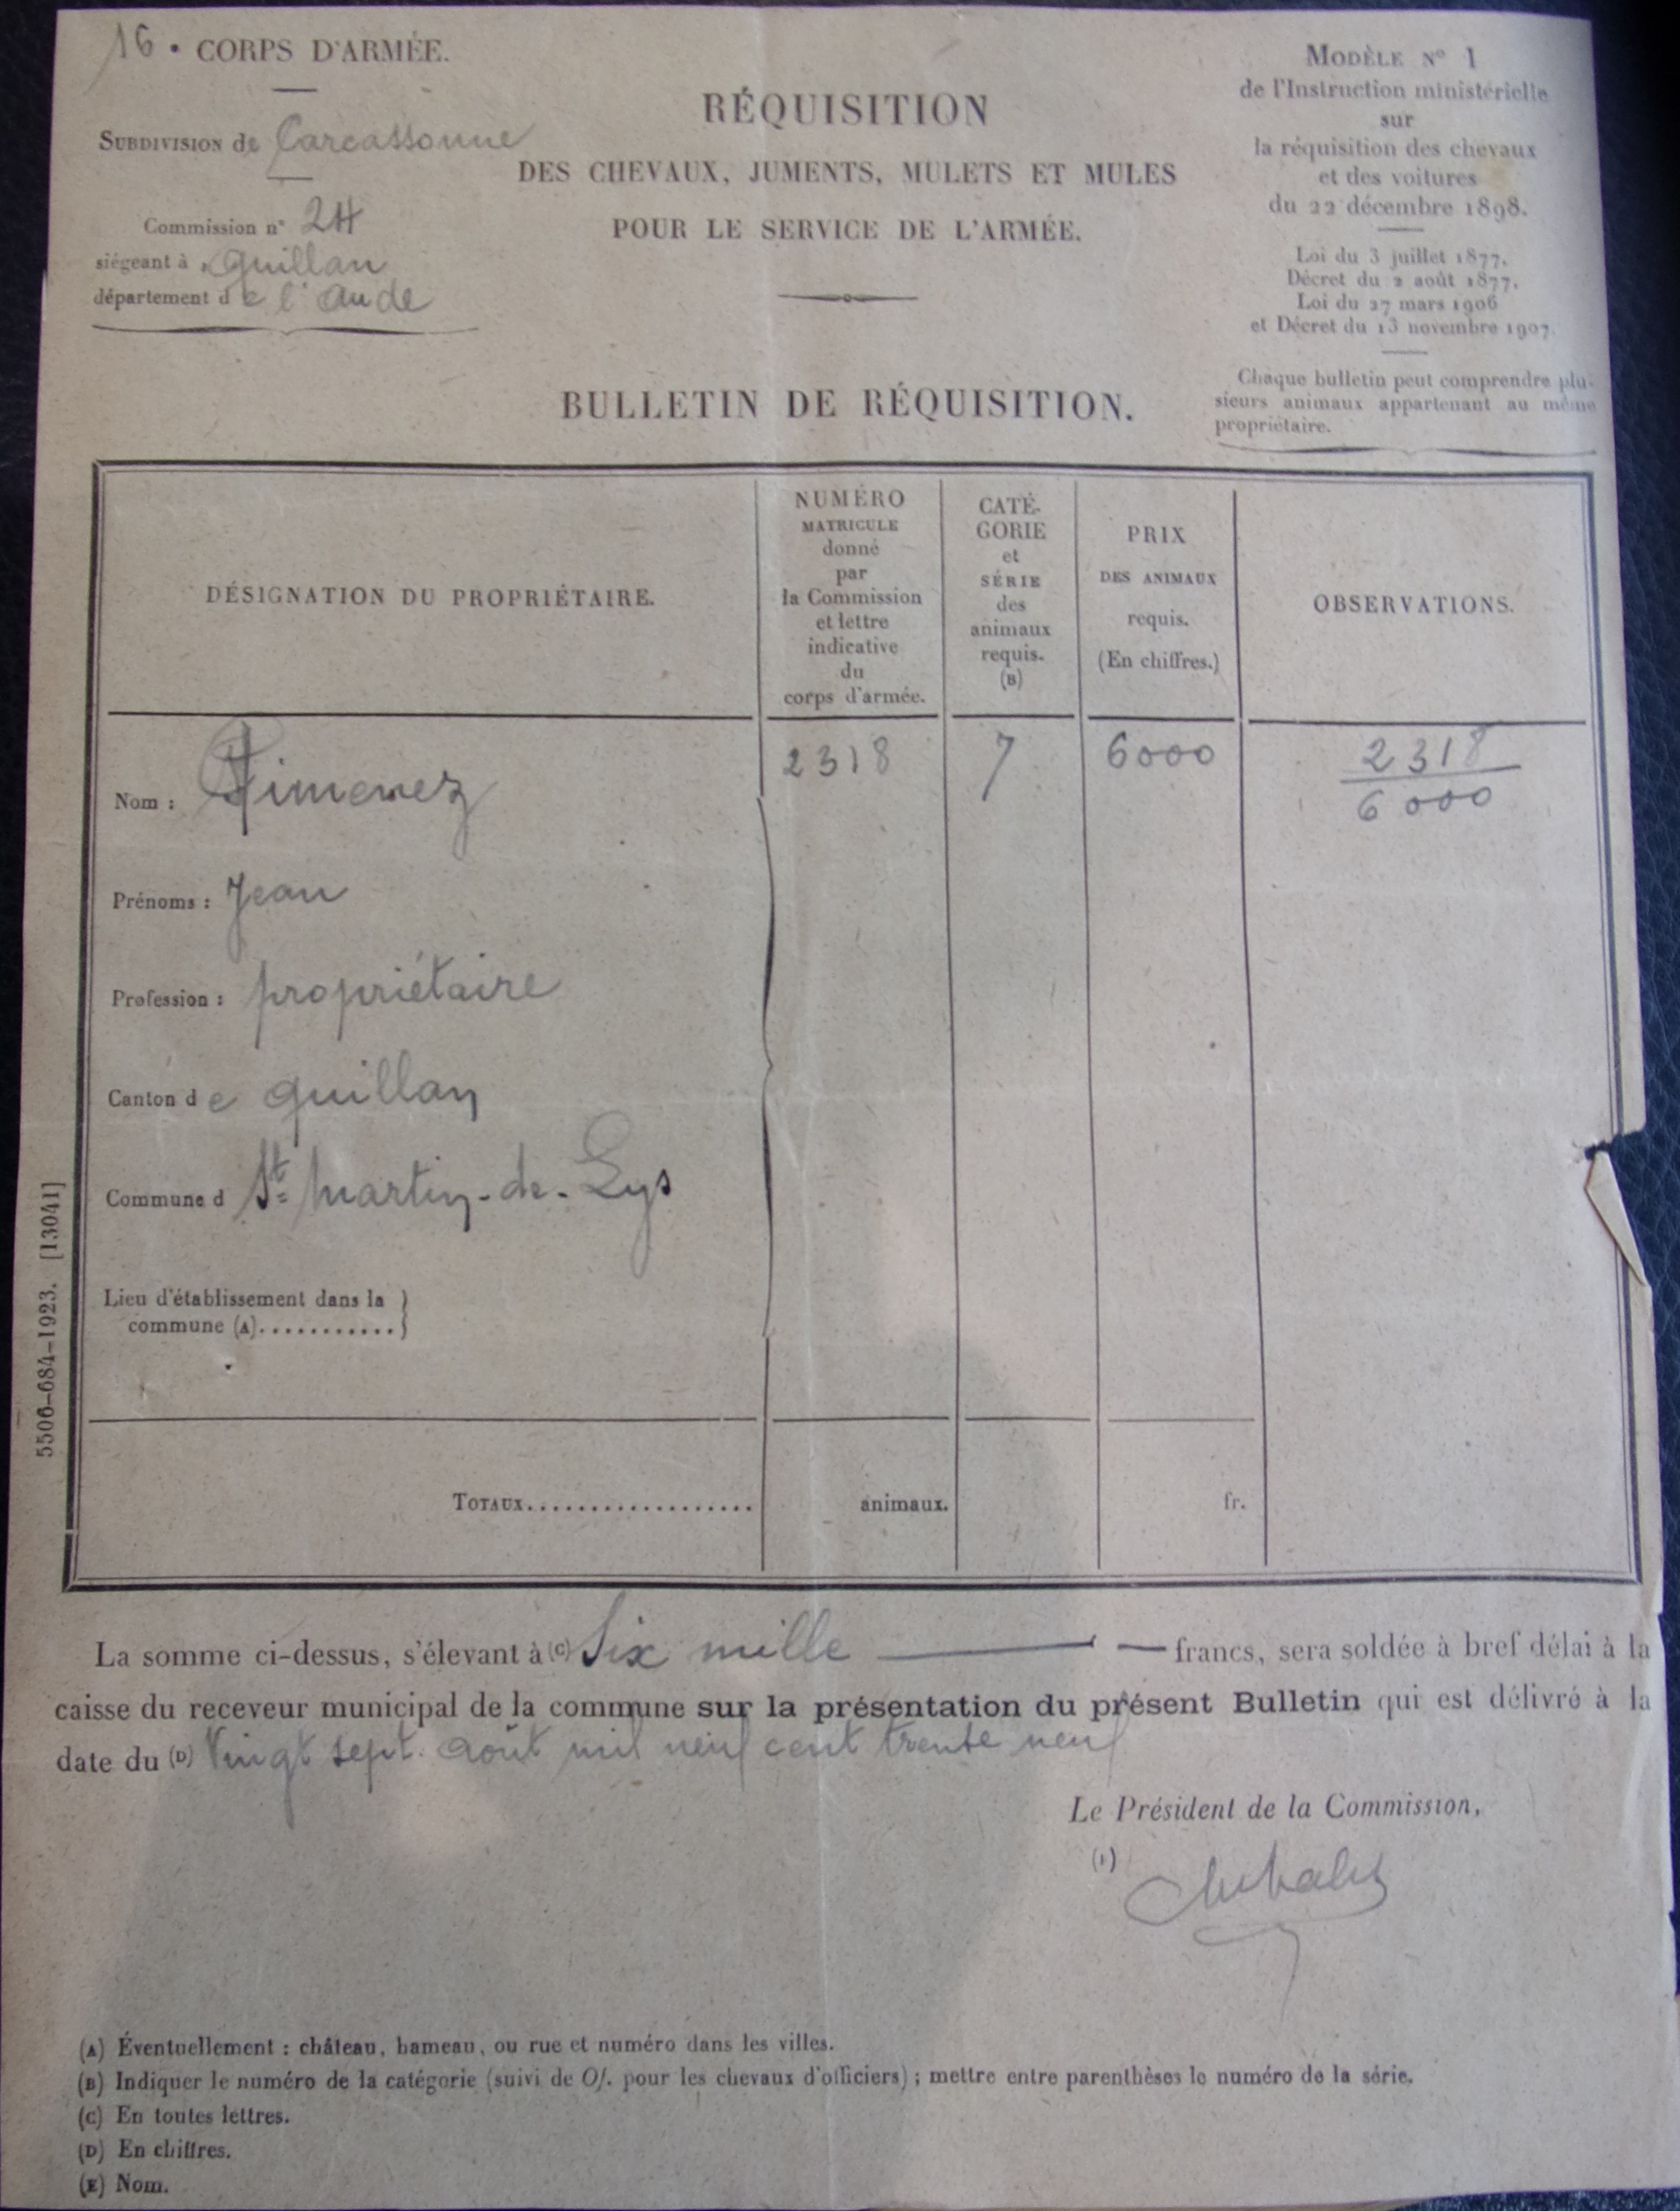 16e CORPS D'ARMÉE.
SUBDIVISION de Carcassonne
Commission n° 24
siégeant à Quillan
département de l'Aude
RÉQUISITION
DES CHEVAUX, JUMENTS, MULETS ET MULES
POUR LE SERVICE DE L'ARMÉE.
BULLETIN DE RÉQUISITION.
MODÈLE N° 1
de l'Instruction ministérielle
sur
la réquisition des chevaux
et des voitures
du 22 décembre 1898.
Loi du 3 juillet 1877.
Décret du 2 août 1877.
Loi du 27 mars 1906
et Décret du 13 novembre 1907.
Chaque bulletin peut comprendre plu-
sieurs animaux appartenant au même
propriétaire.
DÉSIGNATION DU PROPRIÉTAIRE.
NUMÉRO
MATRICULE
donné
par
la Commission
et lettre
indicative
du
corps d'armée.
CATÉ-
GORIE
et
SÉRIE
des
animaux
requis.
(B)
PRIX
DES ANIMAUX
requis.
(En chiffres.)
OBSERVATIONS.
Nom : Jimenez
2318
7
6000
2318
6000
Prénoms : Jean
Profession : propriétaire
Canton de Quillan
Commune d St Martin-de-Lys
Lieu d'établissement dans la
commune (A)...........
TOTAUX..................
animaux.
fr.
5506-684-1923. [13041]
La somme ci-dessus, s'élevant à (C) Six mille — francs, sera soldée à bref délai à la
caisse du receveur municipal de la commune sur la présentation du présent Bulletin qui est délivré à la
date du (D) Vingt sept août mil neuf cent trente neuf
Le Président de la Commission,
(1)
(A) Éventuellement : château, hameau, ou rue et numéro dans les villes.
(B) Indiquer le numéro de la catégorie (suivi de O/. pour les chevaux d'officiers) ; mettre entre parenthèses le numéro de la série.
(C) En toutes lettres.
(D) En chiffres.
(E) Nom.